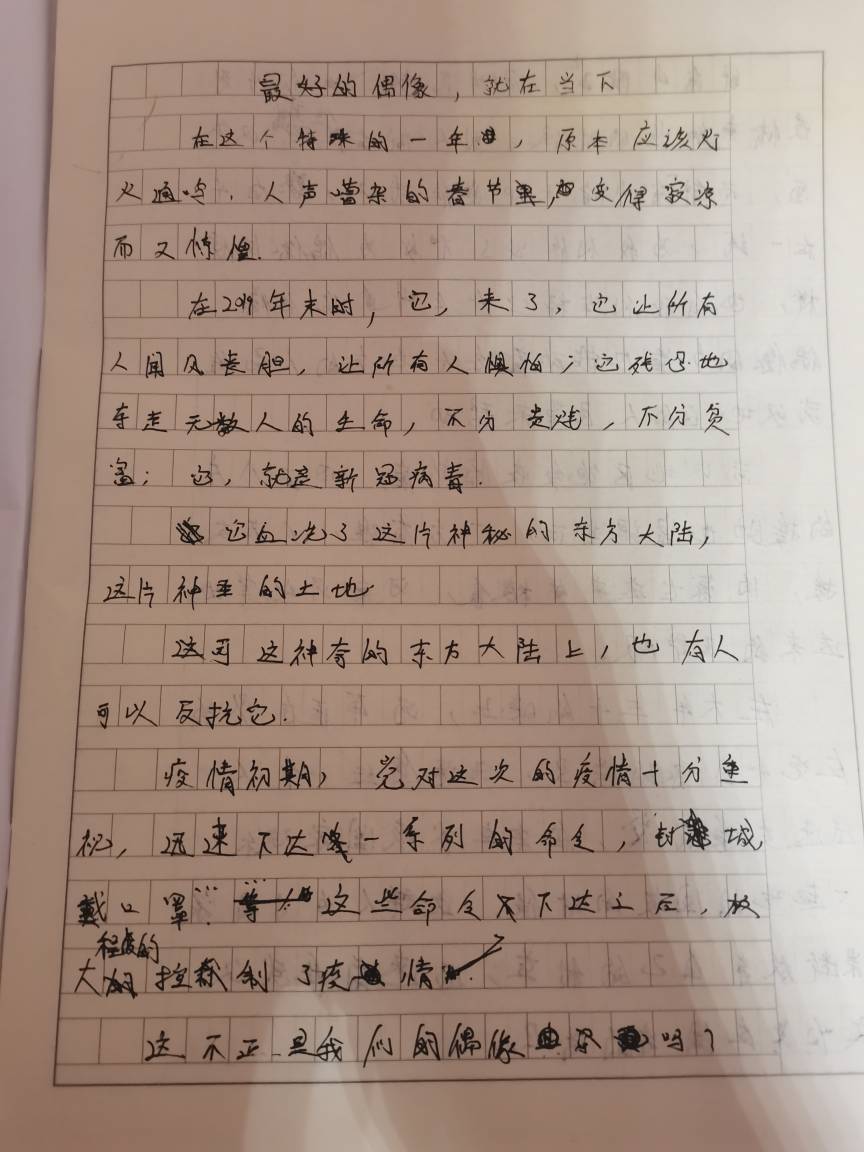 最好的偶像，就在当下
在这个特殊的一年，原本应该火
火通的，人声嘈杂的春节里，变得寂凉
而又惊惶.
在2019年末时，它，来了，它让所有
人闻风丧胆，让所有人惧怕；它残忍地
夺走无数人的生命，不分贵贱，不分贫
富；它，就是新冠病毒.
它血洗了这片神秘的东方大陆，
这片神圣的土地.
这可这神奇的东方大陆上，也有人
可以反抗它.
疫情初期，党对这次的疫情十分重
视，迅速下达一系列的命令，封城
戴口罩……这些命令下达之后，极
大程度的控制了疫情.
这不正是我们的偶像吗？